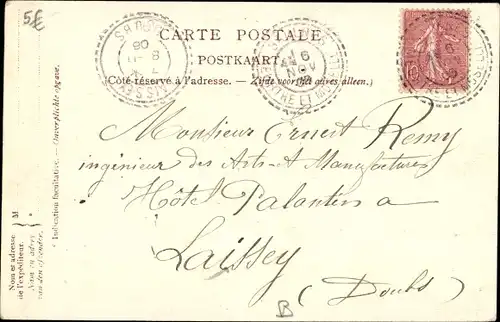 5€
CARTE POSTALE
POSTKAART.
(Côté réservé à l'adresse. — Zijde voor het adres alleen.)
DOUBS
08
NOV
MEURTHE ET MOSELLE
Monsieur Ernest Remy
ingénieur des Arts et Manufactures
Hôtel Palantin a
Laissey
(Doubs)
B
* Indication facultative. — Onverplichte opgave.
Nom et adresse
de l'expéditeur.